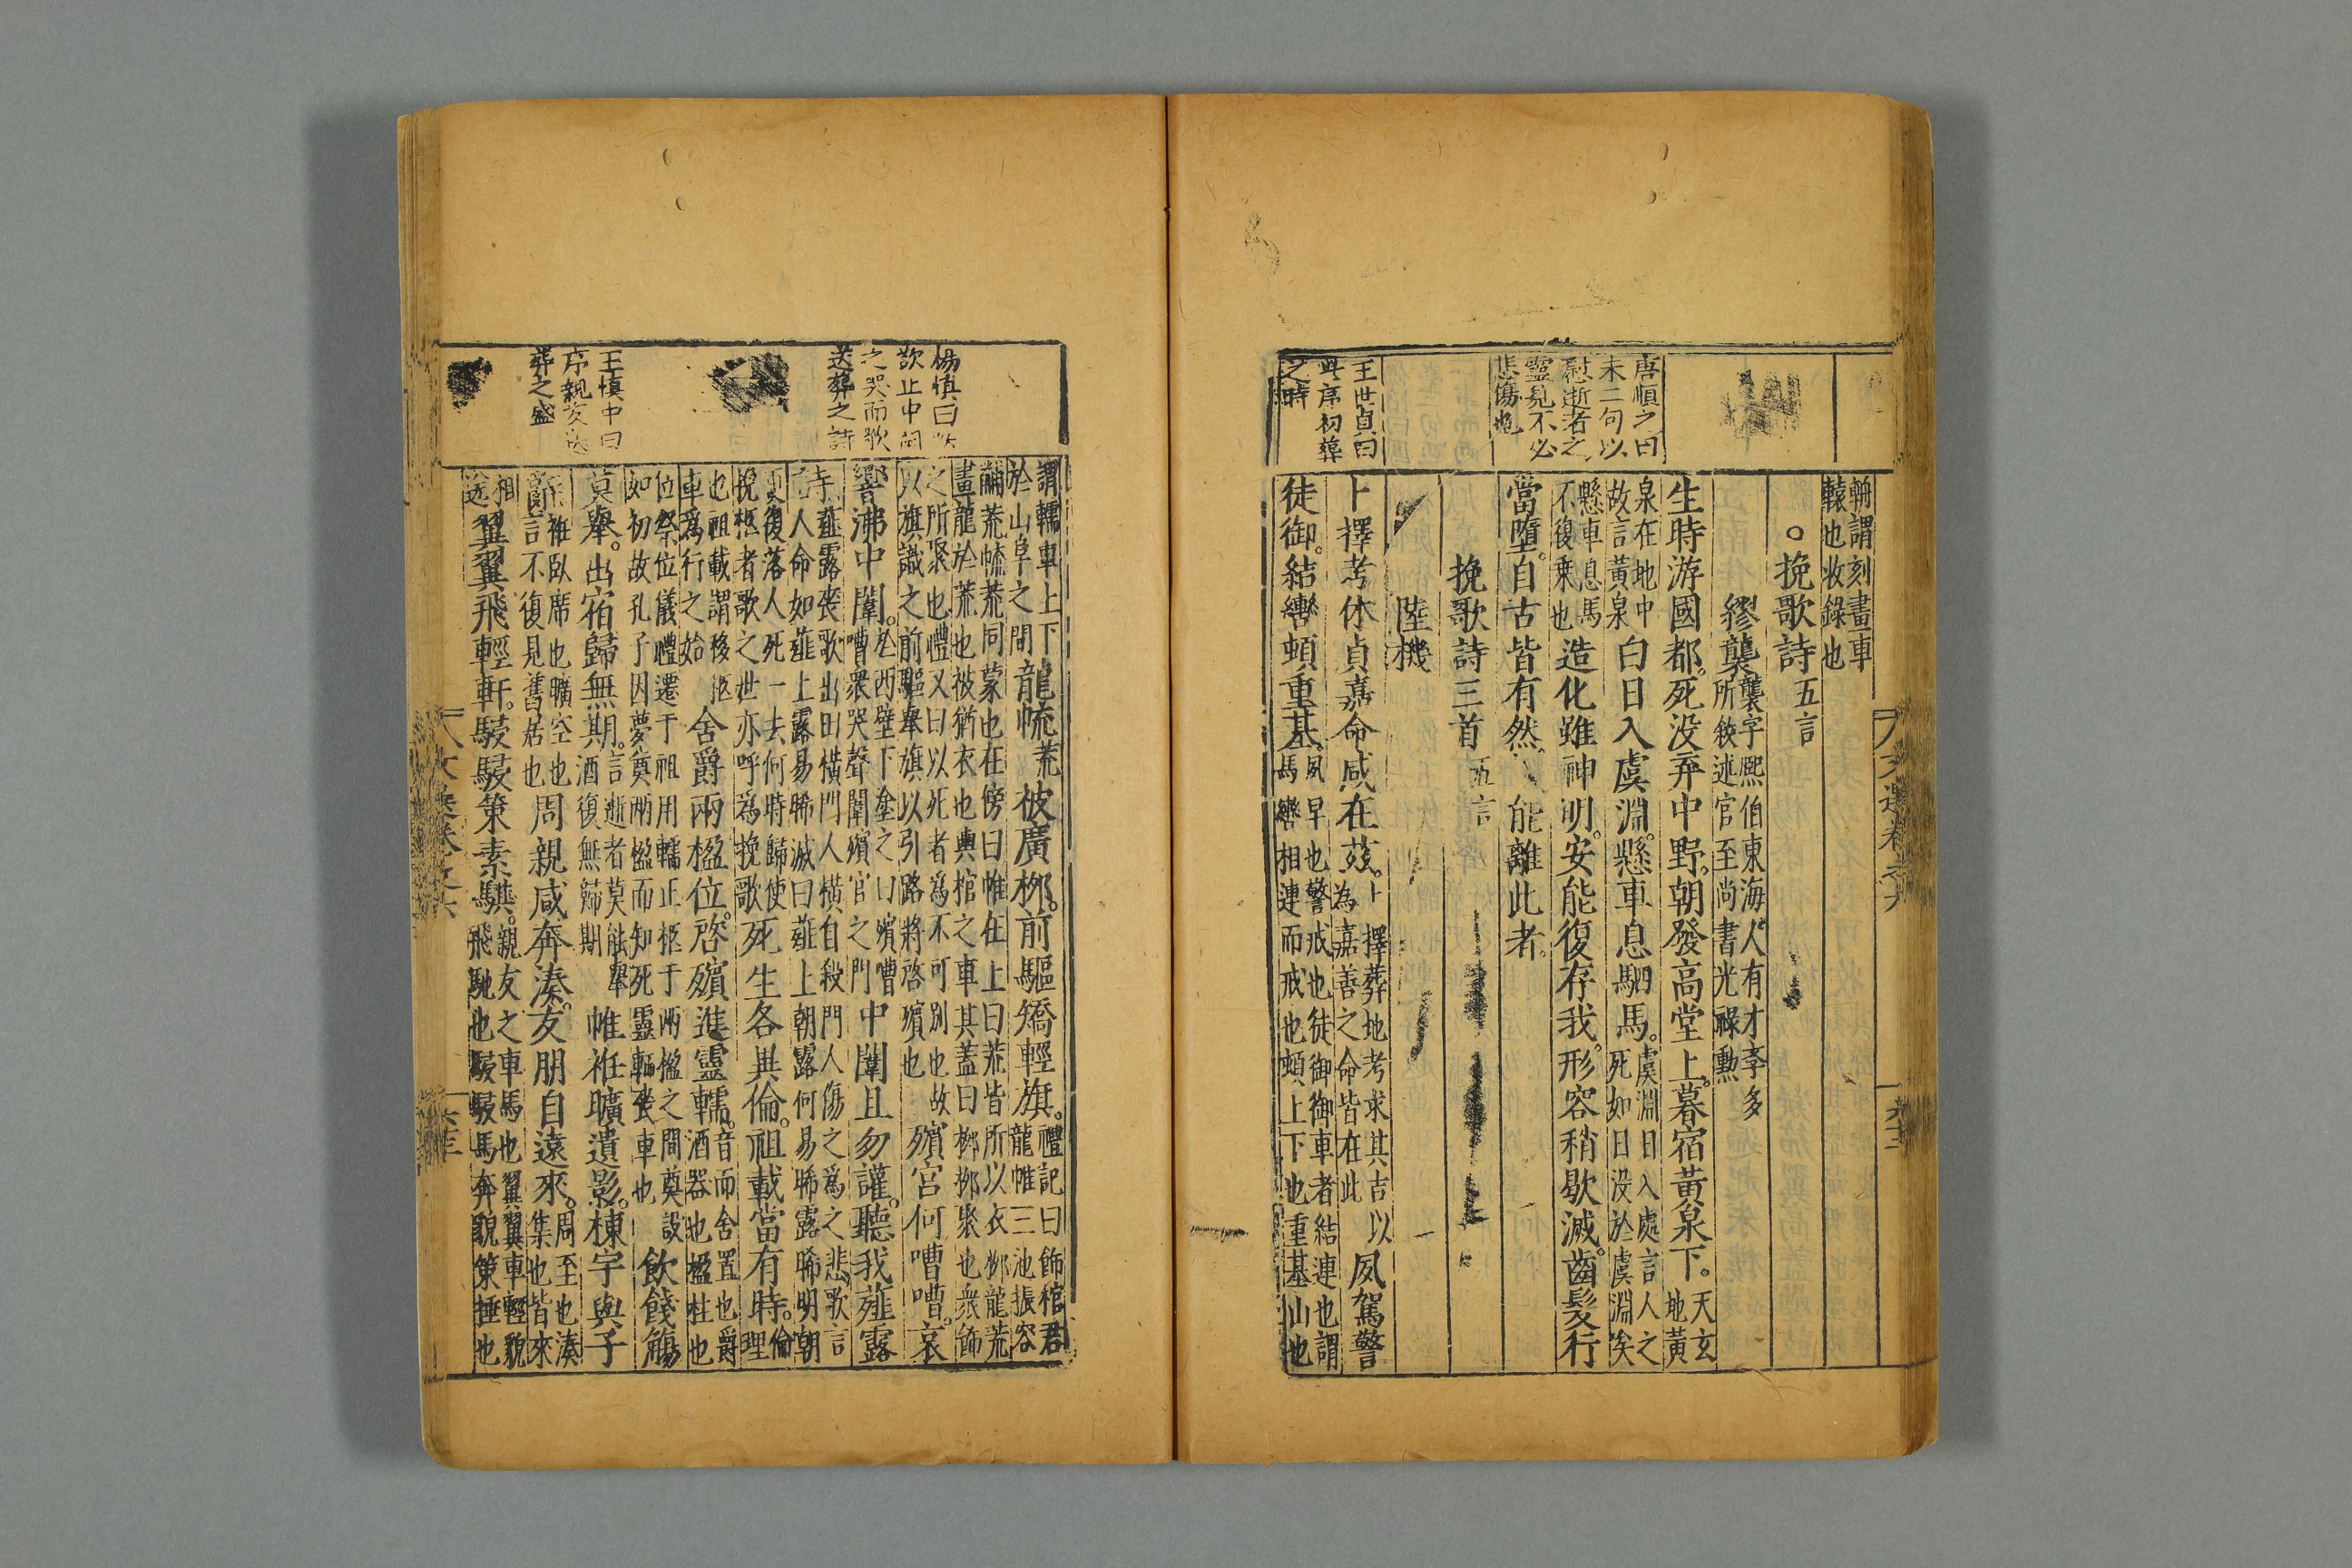 輈謂刻畫車
轅也收錄也
○挽歌詩五言
繆襲襲字熙伯東海人有才學多
所敘述官至尚書光祿勳
生時游國都。死没弃中野。朝發高堂上。暮宿黃泉下。天玄地黃
泉在地中故言黃泉白日入虞淵。懸車息駟馬。虞淵日入處言人之死如日没於虞淵矣
懸車息馬不復乗也造化雖神明。安能復存我。形容稍歇滅。齒髮行
當墮。自古皆有然能離此者。
挽歌詩三首五言
陸機
卜擇考休貞嘉命咸在茲。卜擇葬地考求其吉以為嘉善之命皆在此夙駕警
徒御。結轡頓重基。夙早也警戒也徒御御車者結連也謂馬轡相連而戒也頓上下也重基山也
唐順之曰
末二句以
慰逝者之
靈見不必
悲傷也
王世貞曰
此序初葬
之時
謂轜車上下於山阜之間龍㡆荒被廣柳。前驅矯輕旗。禮記曰飾棺君龍帷三池振容
黼荒㡆荒同蒙也在傍曰帷在上曰荒皆所以衣柳龍荒畫龍於荒也被猶衣也輿棺之車其蓋曰柳柳聚也衆飾
之所聚也禮又曰以死者為不可別也故以旗識之前驅舉旗以引路將啓殯也殯宮何嘈嘈。哀
響沸中闈。於西壁下塗之曰殯嘈嘈衆哭聲闈殯宮之門中闈且勿讙。聽我薤露
詩薤露喪歌出田橫門人橫自殺門人傷之爲之悲歌言人命如薤上露易晞滅曰薤上朝露何易晞露晞明朝
更復落人死一去何時歸使挽柩者歌之世亦呼為挽歌死生各異倫。祖載當有時。倫理
也祖載謂移柩車爲行之始舍爵兩楹位。啓殯進靈轜。音而舍置也爵酒器也楹柱也
位祭位儀禮遷于祖用轜正柩于兩楹之間奠設如初故孔子因夢奠兩楹而知死靈轜喪車也飲餞觴
莫舉。出宿歸無期。言逝者莫能舉酒復無歸期帷袵曠遺影。棟宇與子
辭袵卧席也曠空也言不復見舊居也周親咸奔湊。友朋自遠來。周至也湊集也皆來
相送翼翼飛輕軒。駸駸策素騏。親友之車馬也翼翼車輕貌飛馳也駸駸馬奔貌策捶也
楊慎曰
之哭而歌
送葬之詩
王慎中曰
序親友送
葬之盛